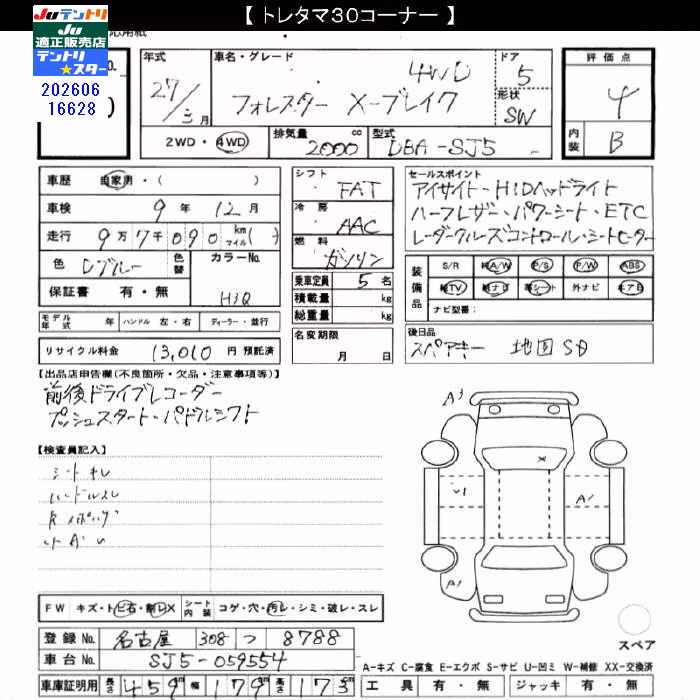 【 トレタマ30コーナー 】
Juテントリ
Ju
適正販売店
テントリ
★スター
202606
16628
年式
車名・グレード
ドア
評価点
27/3月
4WD
5
フォレスター X-ブレイク
形状
SW
4
2WD・4WD
排気量
2000
cc
型式
DBA-SJ5
内装
B
車歴 自家用・( )
シフト
FAT
セールスポイント
車検 9年12月
冷房
AAC
アイサイト・HIDヘッドライト
走行 9万7千090 km(マイル)( )
燃料
ガソリン
ハーフレザー・パワーシート・ETC
レーダークルーズコントロール・シートヒーター
色 Dブルー
色替
カラーNo.
H3Q
保証書 有・無
乗車定員 5名
積載量 kg
総重量 kg
装備品
S/R 純A/W P/S P/W ABS
純TV 純ナビ 革シート 外ナビ キアB
ナビ型番:
モデル年式 年 ハンドル 左・右 ディーラー・並行
名変期限
月 日
後日品
スペアキー 地図SD
リサイクル料金 13,010 円 預託済
【出品店申告欄(不良箇所・欠品・注意事項等)】
前後ドライブレコーダー
プッシュスタート・パドルシフト
【検査員記入】
シートキレ
ハンドルスレ
A3
A1
A1
FW キズ・トビ石・割レX
シート内装 コゲ・穴・汚レ・シミ・破レ・スレ
登録No. 名古屋 308 つ 8788
車台No. SJ5-059554
車庫証明用 長さ 459cm 幅 179cm 高さ 173cm
スペア
A-キズ C-腐食 E-エクボ S-サビ U-凹ミ W-補修 XX-交換済
工具 有・無 ジャッキ 有・無